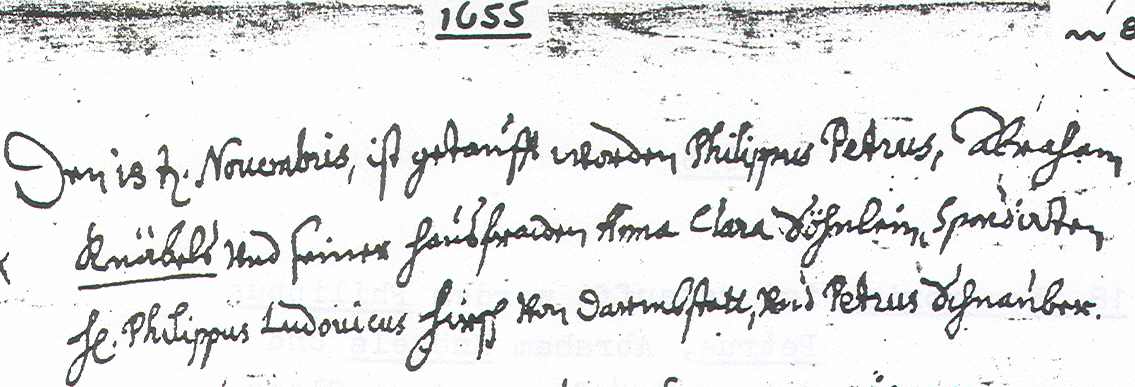 1655
Den 18 t. Novembris, ist getaufft worden Philippus Petrus, Abraham
Knäbels und seiner Hausfrawen Anna Clara Söhnlein,
H. Philippus Ludovicus Hirsch von Darmbstatt, und Petrus Schnauber.